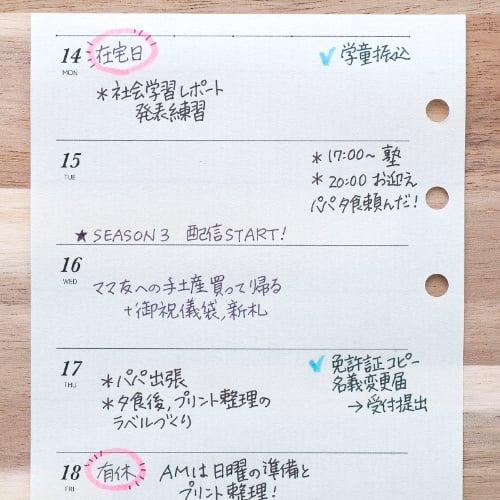 14 在宅日 ✓学童振込
MON
*社会学習レポート
発表練習
15 *17:00~ 塾
TUE *20:00 お迎え
パパタ食頼んだ!
★SEASON3 配信START!
16
WED ママ友への手土産買って帰る
+御祝儀袋,新札
17 ✓免許証コピー
THU *パパ出張 名義変更届
*夕食後,プリント整理の →受付提出
ラベルづくり
18 有休 AMは日曜の準備と
FRI プリント整理!